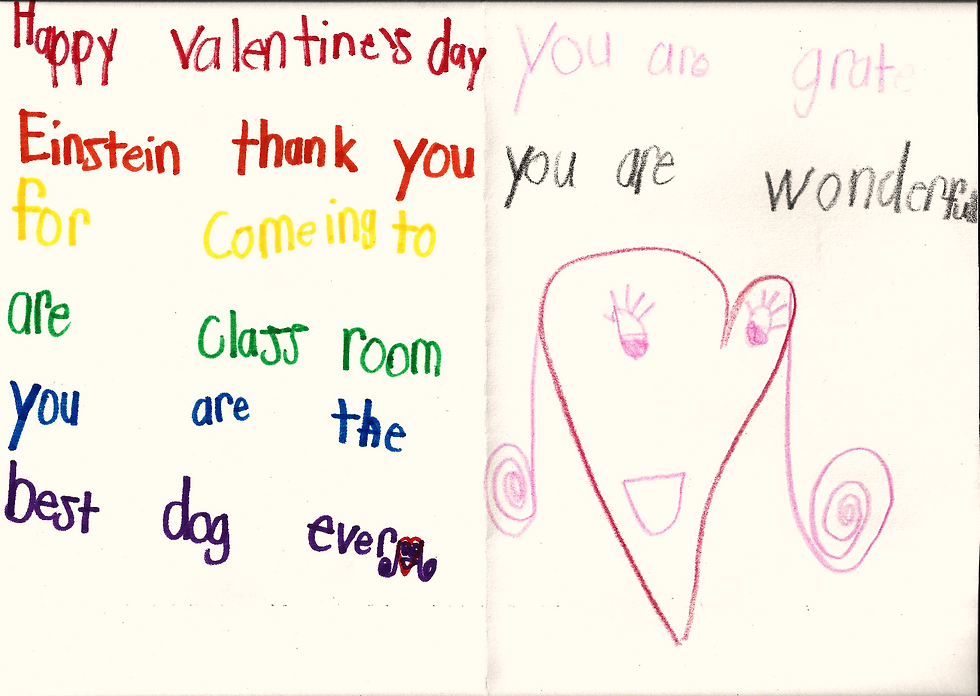 Happy Valentine's day
Einstein thank you
for Comeing to
are Class room
you are the
best dog ever
you are grate
you are wonderful